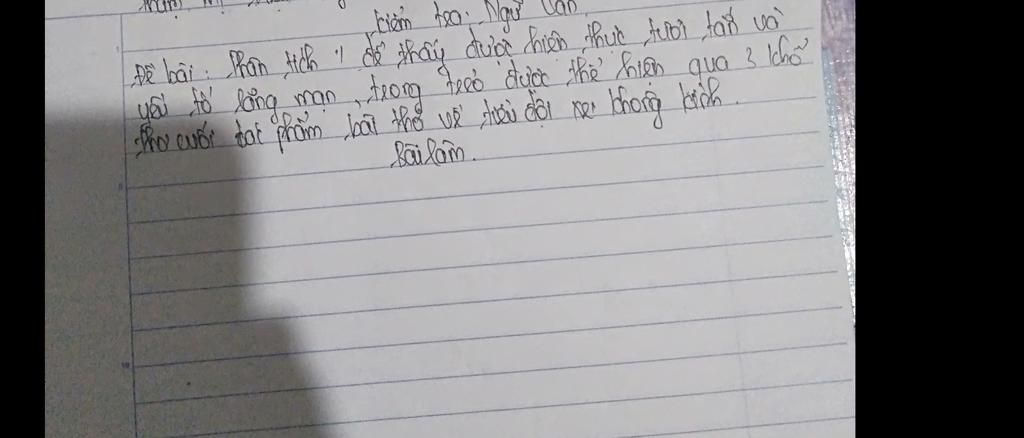 Kiểm tra: Ngữ văn
Đề bài: Phân tích để thấy được hiện thực tươi tắn và
yếu tố lãng mạn, trong trẻo được thể hiện qua 3 khổ
thơ cuối tác phẩm bài thơ về tiểu đội xe không kính.
Bài làm.